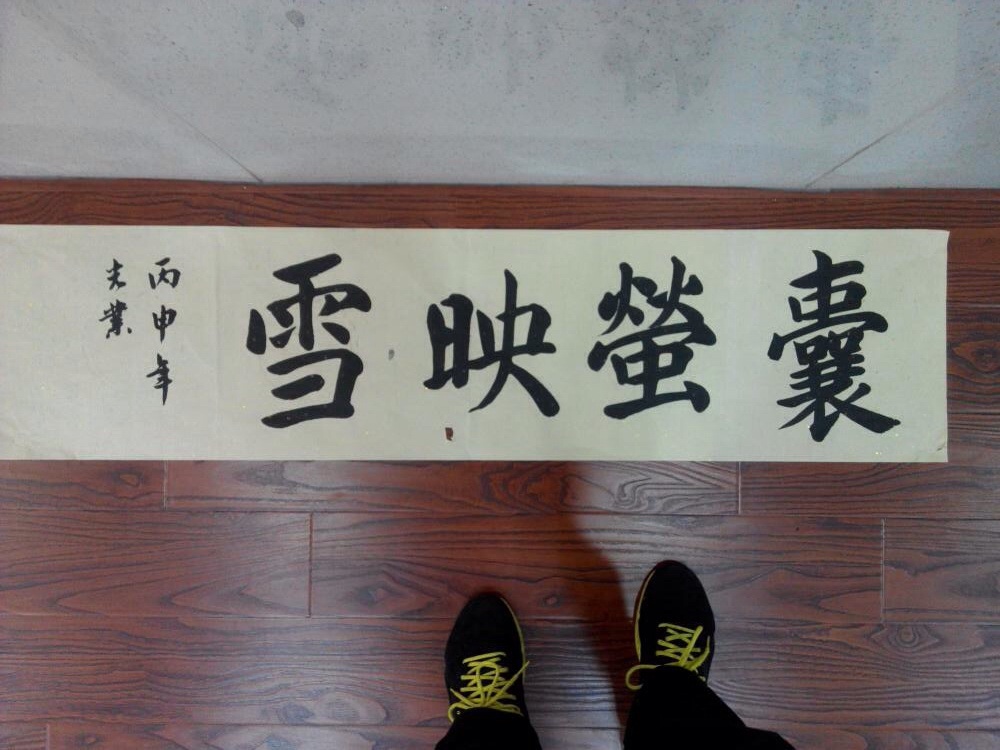 囊螢映雪
丙申年
光業